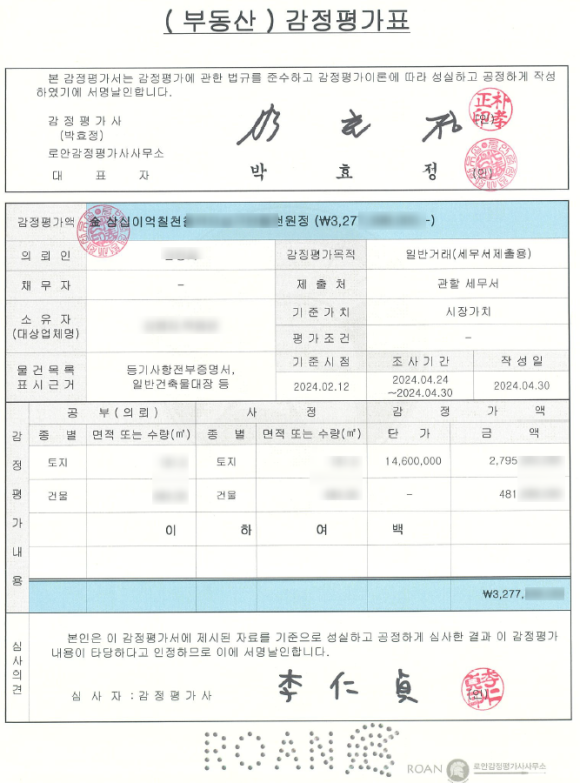 ( 부동산 ) 감정평가표
본 감정평가서는 감정평가에 관한 법규를 준수하고 감정평가이론에 따라 성실하고 공정하게 작성
하였기에 서명날인합니다.
감 정 평 가 사
(박효정)
(인)
로안감정평가사사무소
대 표 자 박 효 정 (인)
감정평가액 金 삼십이억칠천 천원정 (₩3,27 -)
의 뢰 인 감정평가목적 일반거래(세무서제출용)
채 무 자 – 제 출 처 관할 세무서
소 유 자
(대상업체명)
기 준 가 치 시장가치
평 가 조 건 –
물 건 목 록
표 시 근 거
등기사항전부증명서,
일반건축물대장 등
기 준 시 점 조 사 기 간 작 성 일
2024.02.12 2024.04.24
~2024.04.30 2024.04.30
감 정 평 가 내 용
공 부 ( 의 뢰 ) 사 정 감 정 가 액
종 별 면적 또는 수량(㎡) 종 별 면적 또는 수량(㎡) 단 가 금 액
토지 토지 14,600,000 2,795
건물 건물 – 481
이 하 여 백
₩3,277,
심 사 의 견
본인은 이 감정평가서에 제시된 자료를 기준으로 성실하고 공정하게 심사한 결과 이 감정평가
내용이 타당하다고 인정하므로 이에 서명날인합니다.
심 사 자 : 감 정 평 가 사 李 仁 貞 (인)
ROAN
ROAN 로안감정평가사사무소